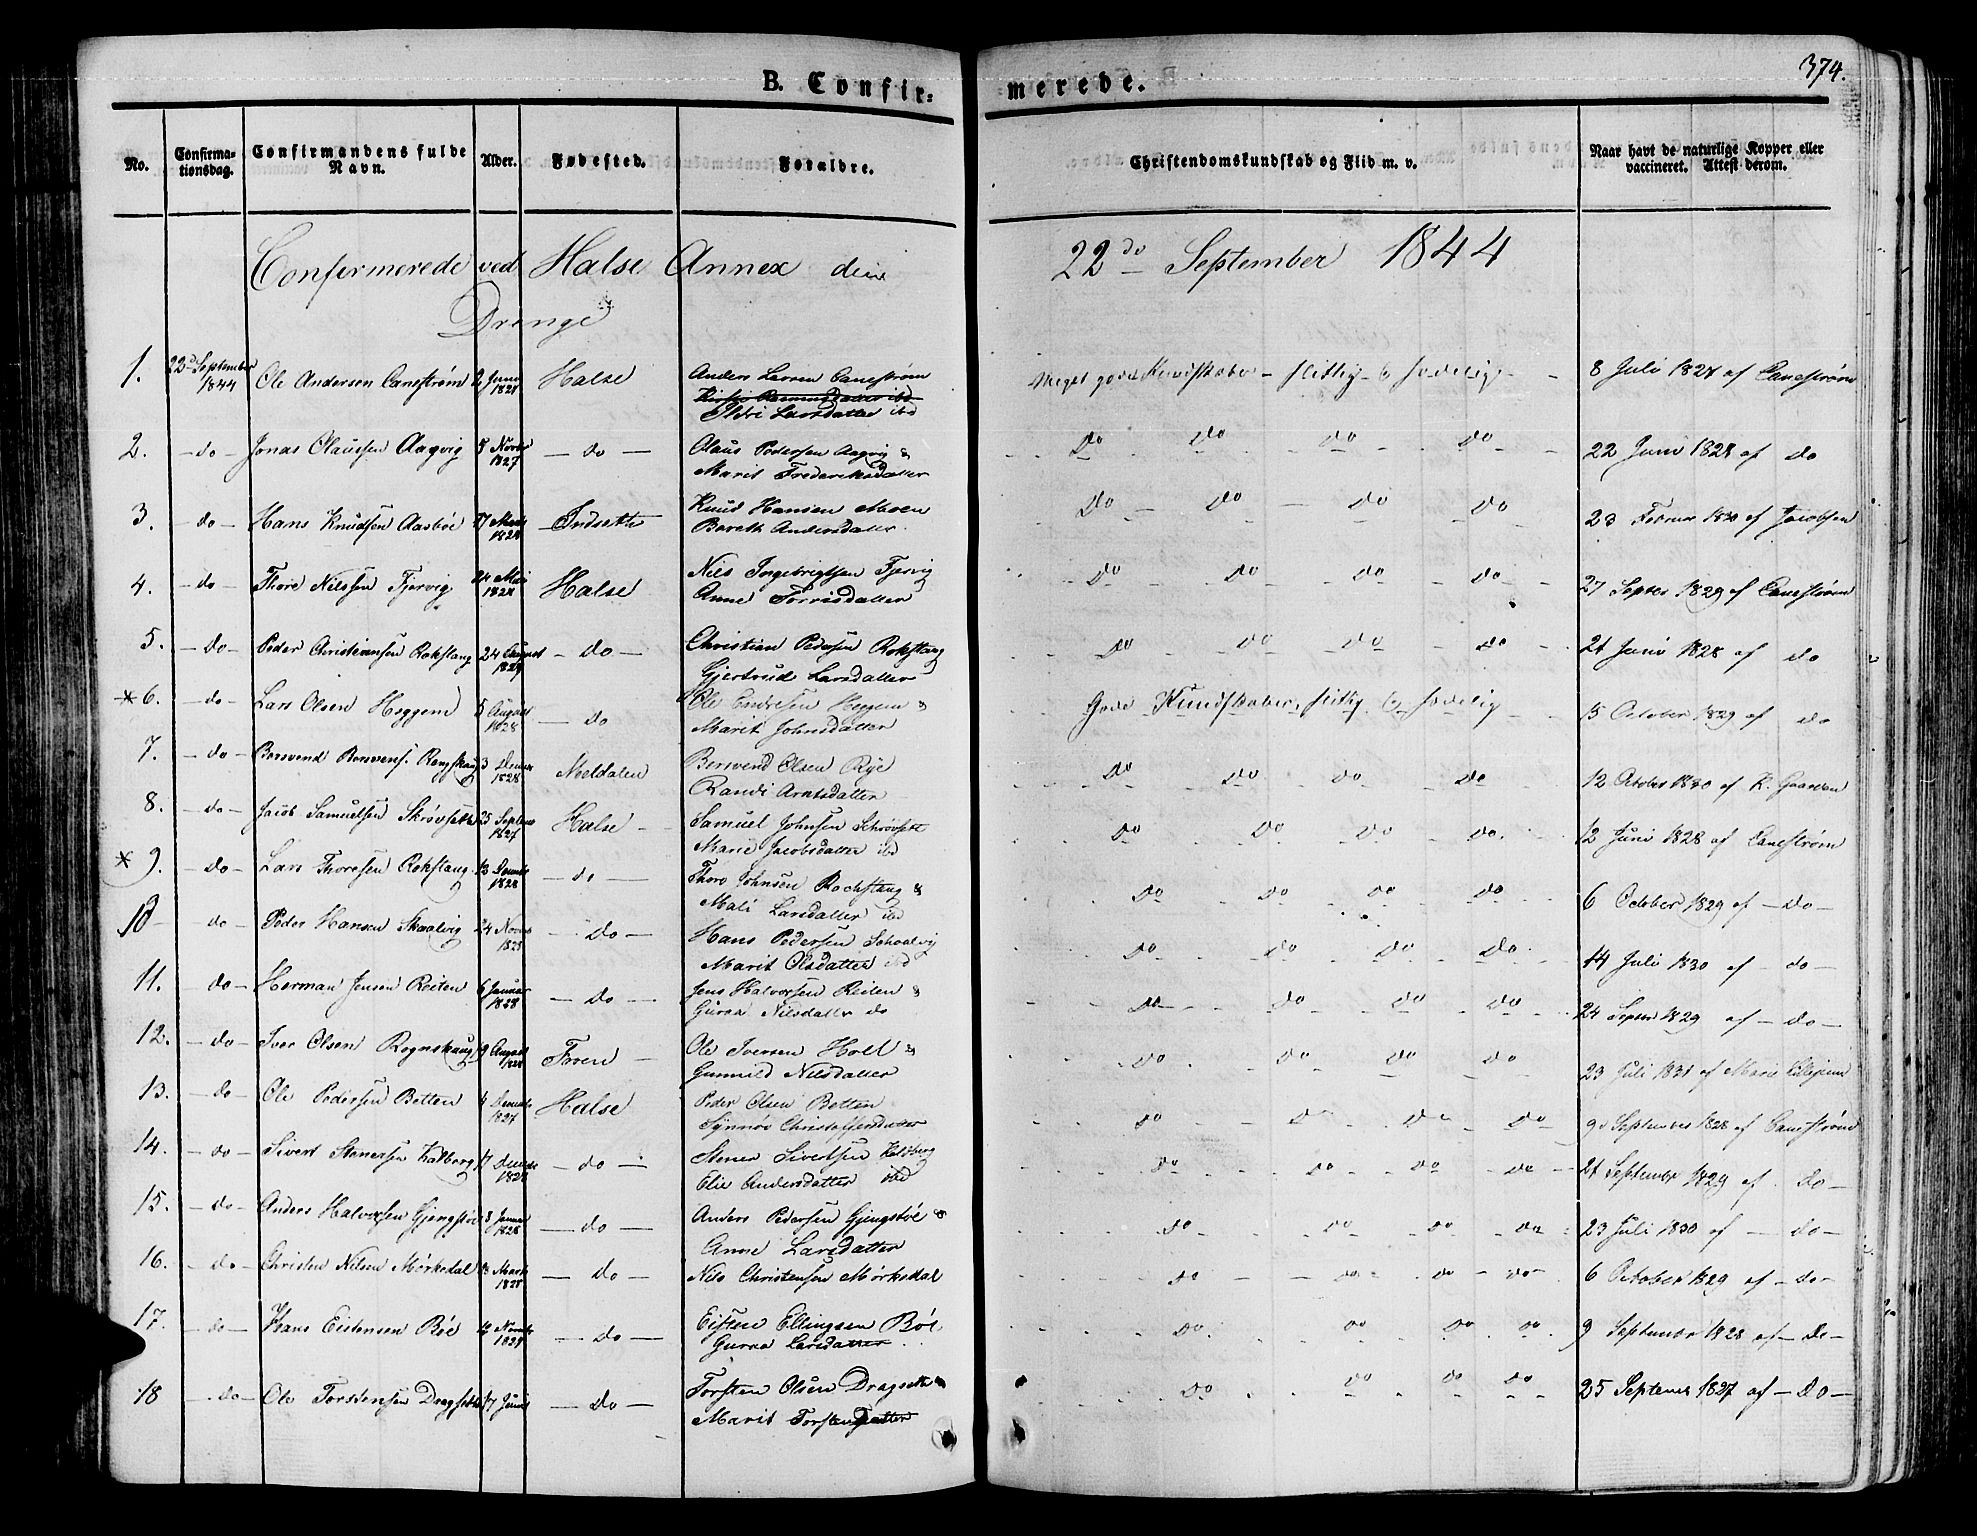 374.
B. Confir= merede.
No. Confirma-tionsdag. Confirmandens fulde Navn. Alder. Fødested. Forældre. Christendomskundskab og Flid m. v. Naar havt de naturlige Kopper eller vaccineret. Attest derom.
Confirmerede ved Halse Annex den 22de September 1844
Drenge
1. 22d September 1844 Ole Andersen Canestrøm 2 Juni Halse Anders Larsen Canestrøm Meget gode Kundskaber - flittig & sædelig - 8 Juli 1827 af Canestrøm
Ildri Larsdatter ibd
2. - do - Jonas Olaussen Aagvig 8 Novbr 1827 - do - Olaus Pedersen Aagvig & do do do do 22 Juni 1828 af do
Marit Frederiksdatter
3. - do - Hans Knudsen Aasbøe 17 Indsette Knud Hansen Moen do do do do 23 Februar 1830 af Jacobsen
Bereth Andersdatter
4. - do - Thore Nilssen Fjervig 24 Mai Halse Nils Ingebrigtsen Fjervig do do do do 27 Septbr 1829 af Canestrøm
Anne Torrisdatter
5. - do - Peder Christiansen Rokstang 24 August - do - Christian Pedersen Rokstang do do do do 21 Juni 1828 af do
Gjertrud Larsdatter
* 6. - do - Lars Olsen Heggem 5 August 1828 - do Ole Endresen Heggem & Gode Kundskaber, flittig & sædelig 15 October 1829 af do
Marit Johnsdatter
7. - do - Bersvend Bersvens. Rognskaug 3 1828 Meldalen Bersvend Olsen Rye do do do do 12 October 1830 af K. Gaarden
Randi Arntsdatter
8. - do - Jacob Samuelsen Skrøvsette 25 Septemb 1827 Halse - Samuel Johnsen Schrøvsette do do do do 12 Juni 1828 af Canestrøm
Marie Jacobsdatter ibd
* 9. - do - Lars Thoresen Rokstang 13 1828 - do - Thore Johnsen Rochstang & do do do do 6 October 1829 af - do -
Mali Larsdatter ibd
10 - do - Peder Hansen Skaalvig 24 Novbr - do - Hans Pedersen Schaalvig do do do do 14 Juli 1830 af - do -
Marit Olsdatter ibd
11. - do - Herman Jensen Reiten 6 Januar 1828 - do - Jens Halvorsen Reiten & do do do do 24 Septbr 1829 af - do -
Guroa Nilsdatter do
12. - do - Iver Olsen Rognskaug 9 August 1828 Foren - Ole Iversen Holl & do do do do 23 Juli 1831 af Marie
Gunnild Nilsdatter
13. - do - Ole Pedersen Betten 4 1827 Halse Peder Olsen Betten do do do do 9 September 1828 af Canestrøm
Synnøv
14. - do - Sivert Stenersen Kalberg 17 - do - Stener Sivertsen Kalberg do do do do 21 September 1829 af do -
Elie Andersdatter ibd
15. - do - Anders Halvorsen Gjengstøe 8 Januar 1828 - do - Anders Pedersen Gjengstøe & do do do do 23 Juli 1830 af - do -
Anne Larsdatter
16. - do - Christen Nilsen Mørkedal Marts 1828 - do - Nils Christensen Mørkedal do do do do 6 October 1829 af - do -
17. - do - Hans Eistensen Bøe Novbr - do - Eisten Ellingsen Bøe do do do do 9 September 1828 af - do -
Guroa Larsdatter
18 - do - Ole Torstensen Dragsette 17 Juni - do - Torsten Olsen Dragsette & do do do do 25 September 1827 af - do -
Marit Torstensdatter